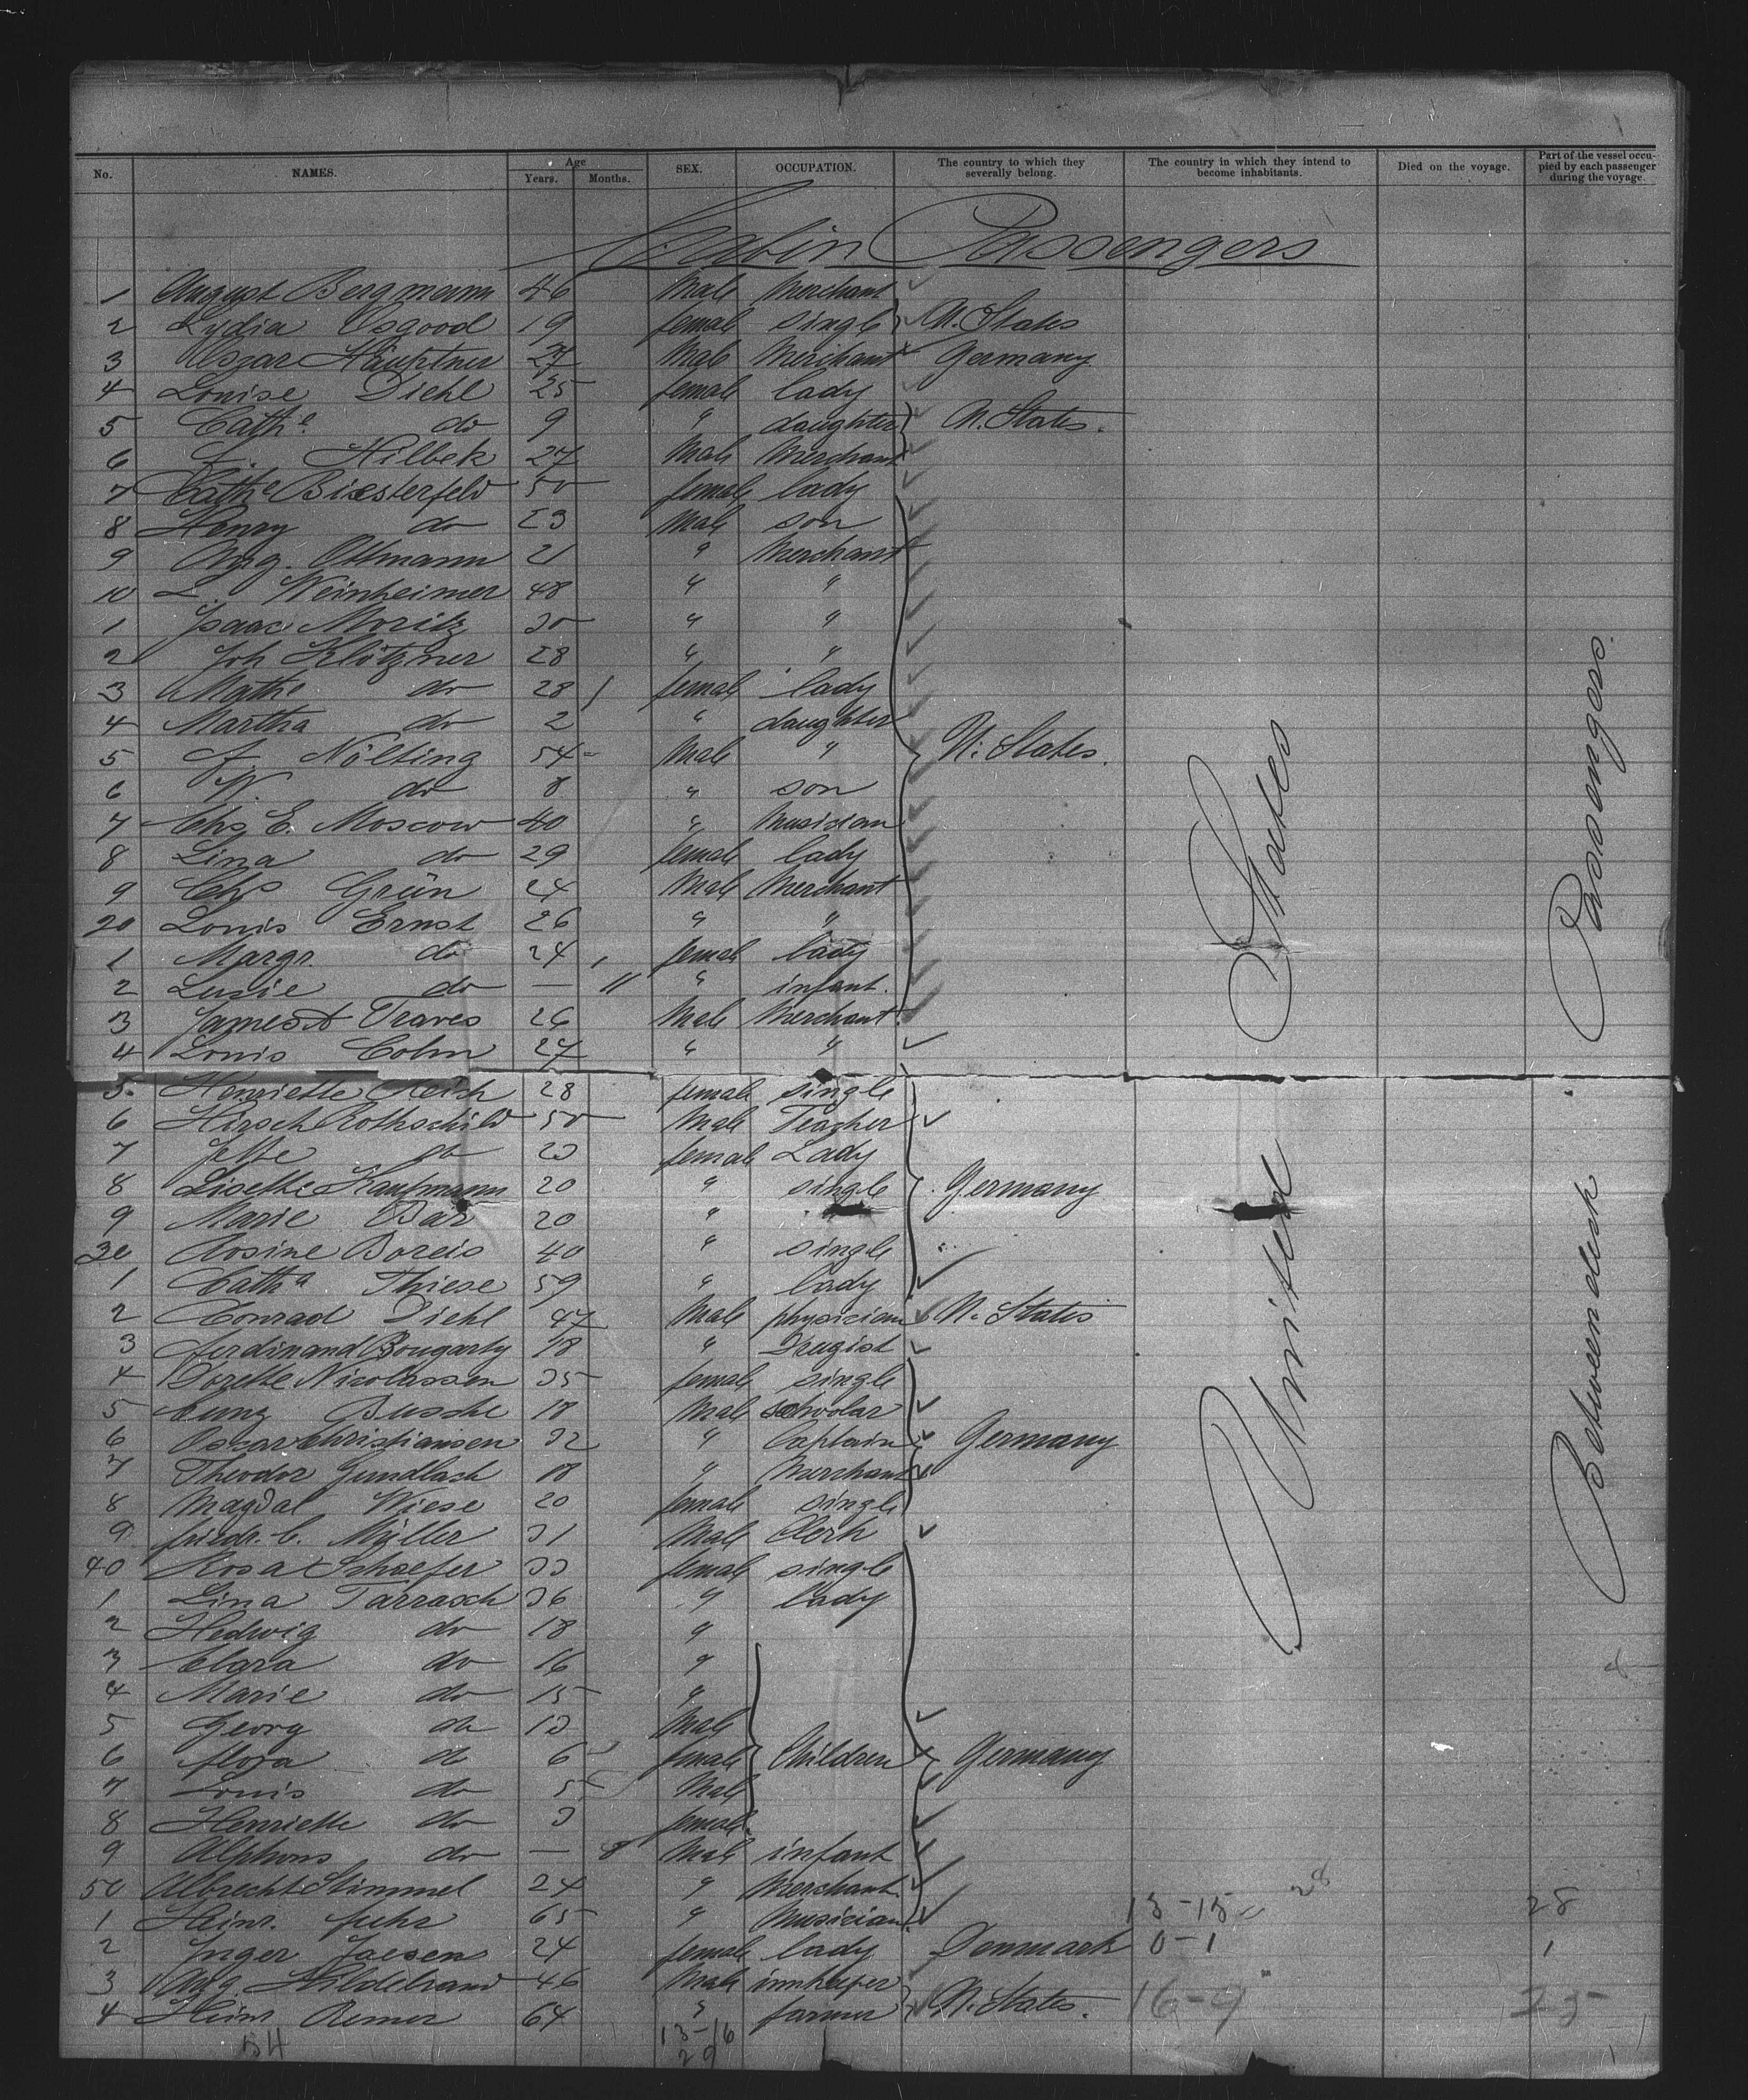 No. NAMES. Age Years. Months. SEX. OCCUPATION. The country to which they severally belong. The country in which they intend to become inhabitants. Died on the voyage. Part of the vessel occupied by each passenger during the voyage.
Cabin Passengers
1 August Bergmann 46 Male Merchant
2 Lydia Osgood 19 female single U. States
3 Oszar Häuptner 27 Male Merchant Germany
4 Louise Diehl 25 female lady
5 Cathe do 9 " daughter U. States.
6 L. Hilbek 27 Male Merchant
7 Cathe Biesterfeld 50 female lady
8 Henry do 23 Male son
9 Aug. Ottmann 21 " Merchant
10 L. Weinheimer 48 " "
1 Isaac Moritz 30 " "
2 Joh Klötzner 28 " "
3 Mathe do 28 female lady
4 Martha do 2 " daughter
5 f. Nölting 54 Male " U. States.
6 W. do 8 " son
7 Chs E. Moscow 40 " Musician
8 Lina do 29 female lady
9 Chs Grün 24 Male Merchant
20 Louis Ernst 26 " "
1 Margr. do 24 female lady
2 Luzie do — 11 " infant.
3 James A Traves 26 Male Merchant
4 Louis Cohn 27 " "
5 Henriette Reich 28 female single
6 Hirsch Rothschild 50 Male Teacher
7 Jette do 23 female Lady
8 Lisette Kaufmann 20 " single Germany
9 Marie Bär 20 "
30 Rosine Boreis 40 " single
1 Catha Thiese 59 " lady
2 Conrad Diehl 47 Male physician U. States
3 ferdinand Bougarty 18 " Drugist
4 Dorette Nicolassen 35 female single
5 Cunz Busche 18 Male schoolar
6 Oscar Christiansen 32 " Captain Germany
7 Theodor Gundlach 18 " Merchant
8 Magdal Wiese 20 female single
9 friedr. C. Müller 31 Male Clerk
40 Rosa Schaefer 33 female single
1 Lina Tarrasch 36 " lady
2 Hedwig do 18 "
3 Clara do 16 "
4 Marie do 15 "
5 Georg do 13 Male
6 flora do 6 female Children Germany
7 Louis do 5 Male
8 Henriette do 3 female
9 Alphons do — 8 Male infant
50 Albrecht Stimmel 24 " Merchant
1 Heinr. fuhr 65 " Musician 13-15 28 28
2 Inger Jaesen 24 female lady Denmark 0-1 1
3 Aug. Hildebrand 46 Male innkeeper
4 Heinr Remer 64 " farmer U. States. 16-9 25
54 13-16
29
United States
Between deck Passengers.